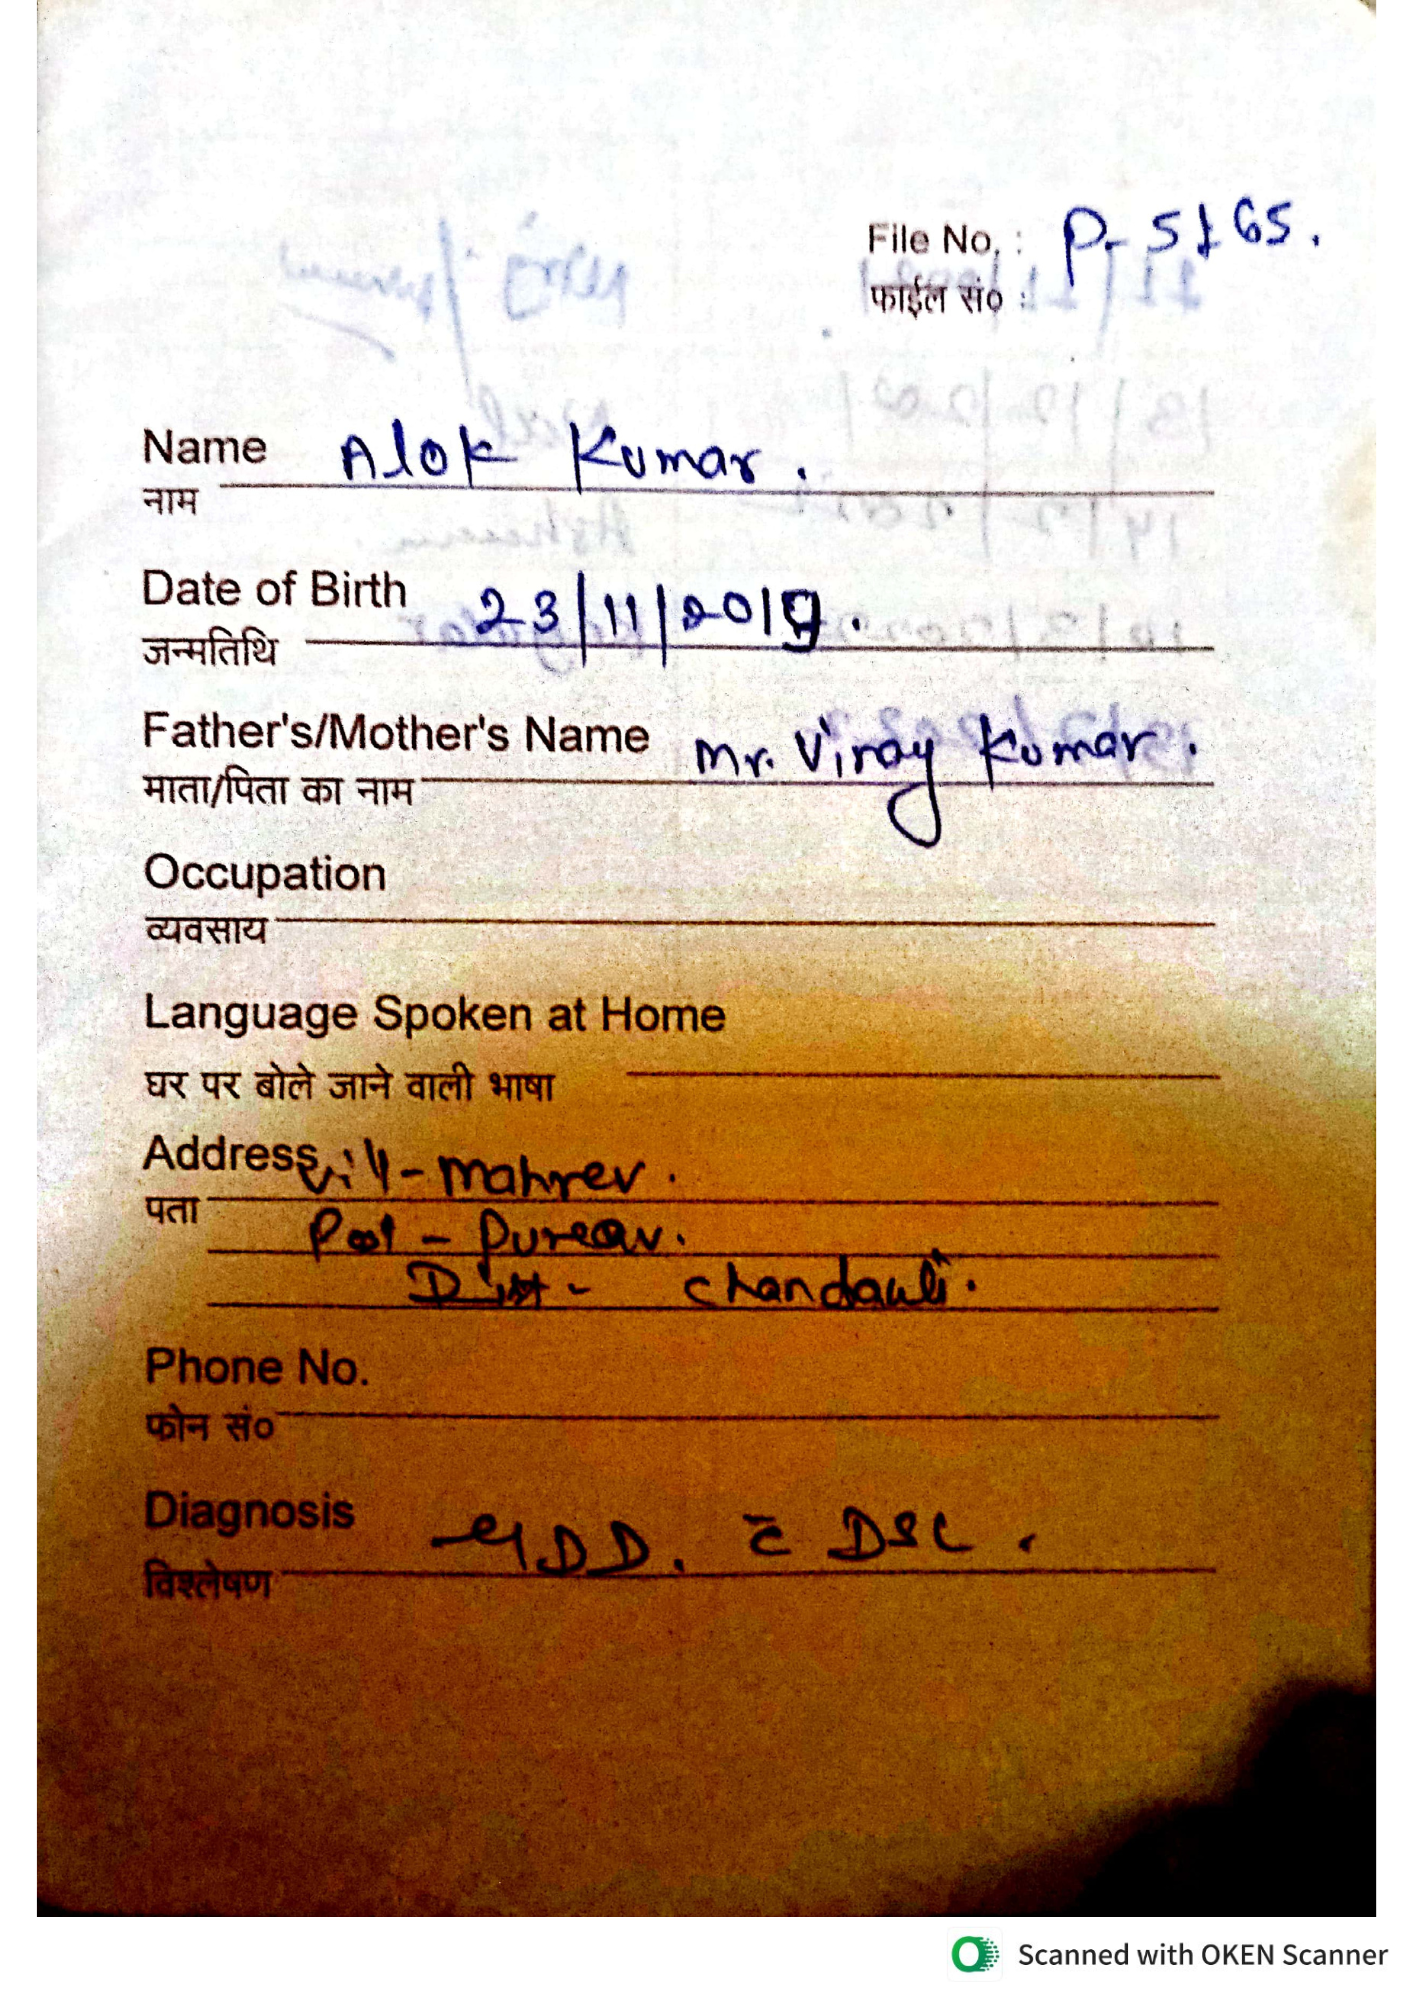 File No. : P- 5165.
फाईल सं० :
Name Alok Kumar.
नाम
Date of Birth 23/11/2019.
जन्मतिथि
Father's/Mother's Name Mr. Viray Kumar.
माता/पिता का नाम
Occupation
व्यवसाय
Language Spoken at Home
घर पर बोले जाने वाली भाषा
Address Vill - Mahrev.
पता
Post -
Dist - Chandauli.
Phone No.
फोन सं०
Diagnosis DD. c̄ DSC.
विश्लेषण
Scanned with OKEN Scanner